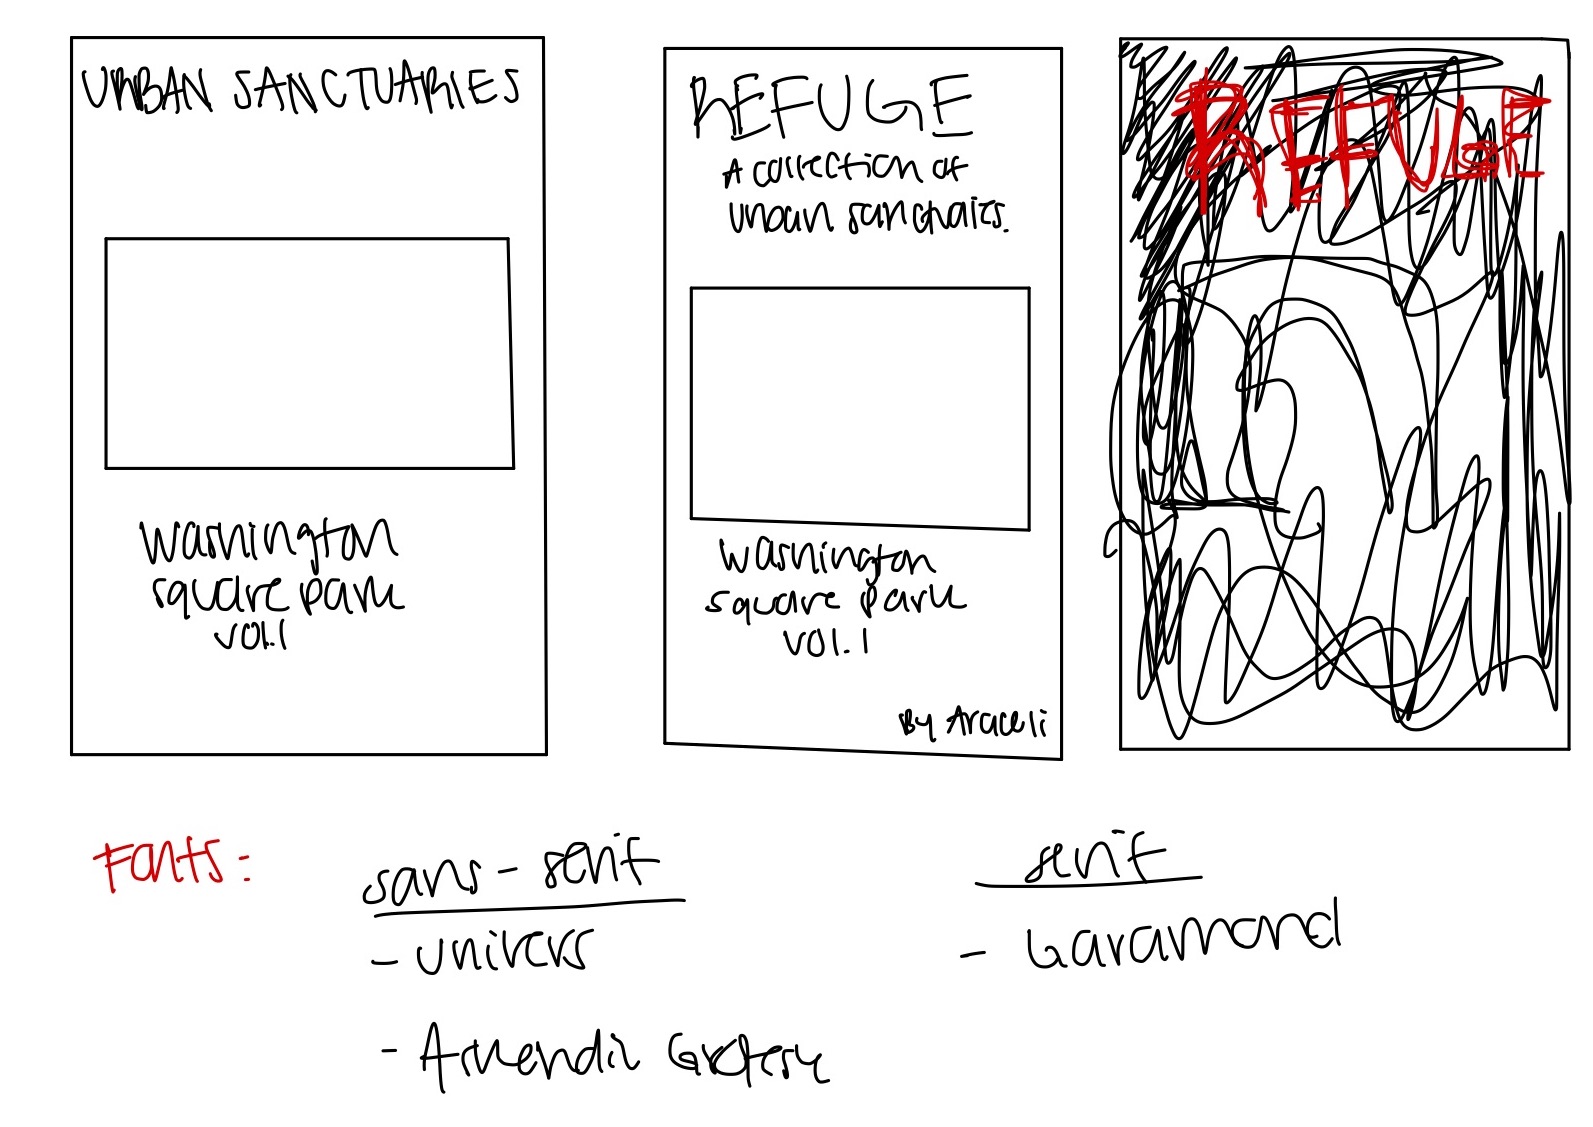 URBAN SANCTUARIES
Washington
square park
vol.1
REFUGE
A collection of
urban sanctuaries.
Washington
square park
vol.1
By Araceli
REFUGE
Fonts:
sans-serif
- univers
- Akzendiz Grotesk
serif
- Garamond